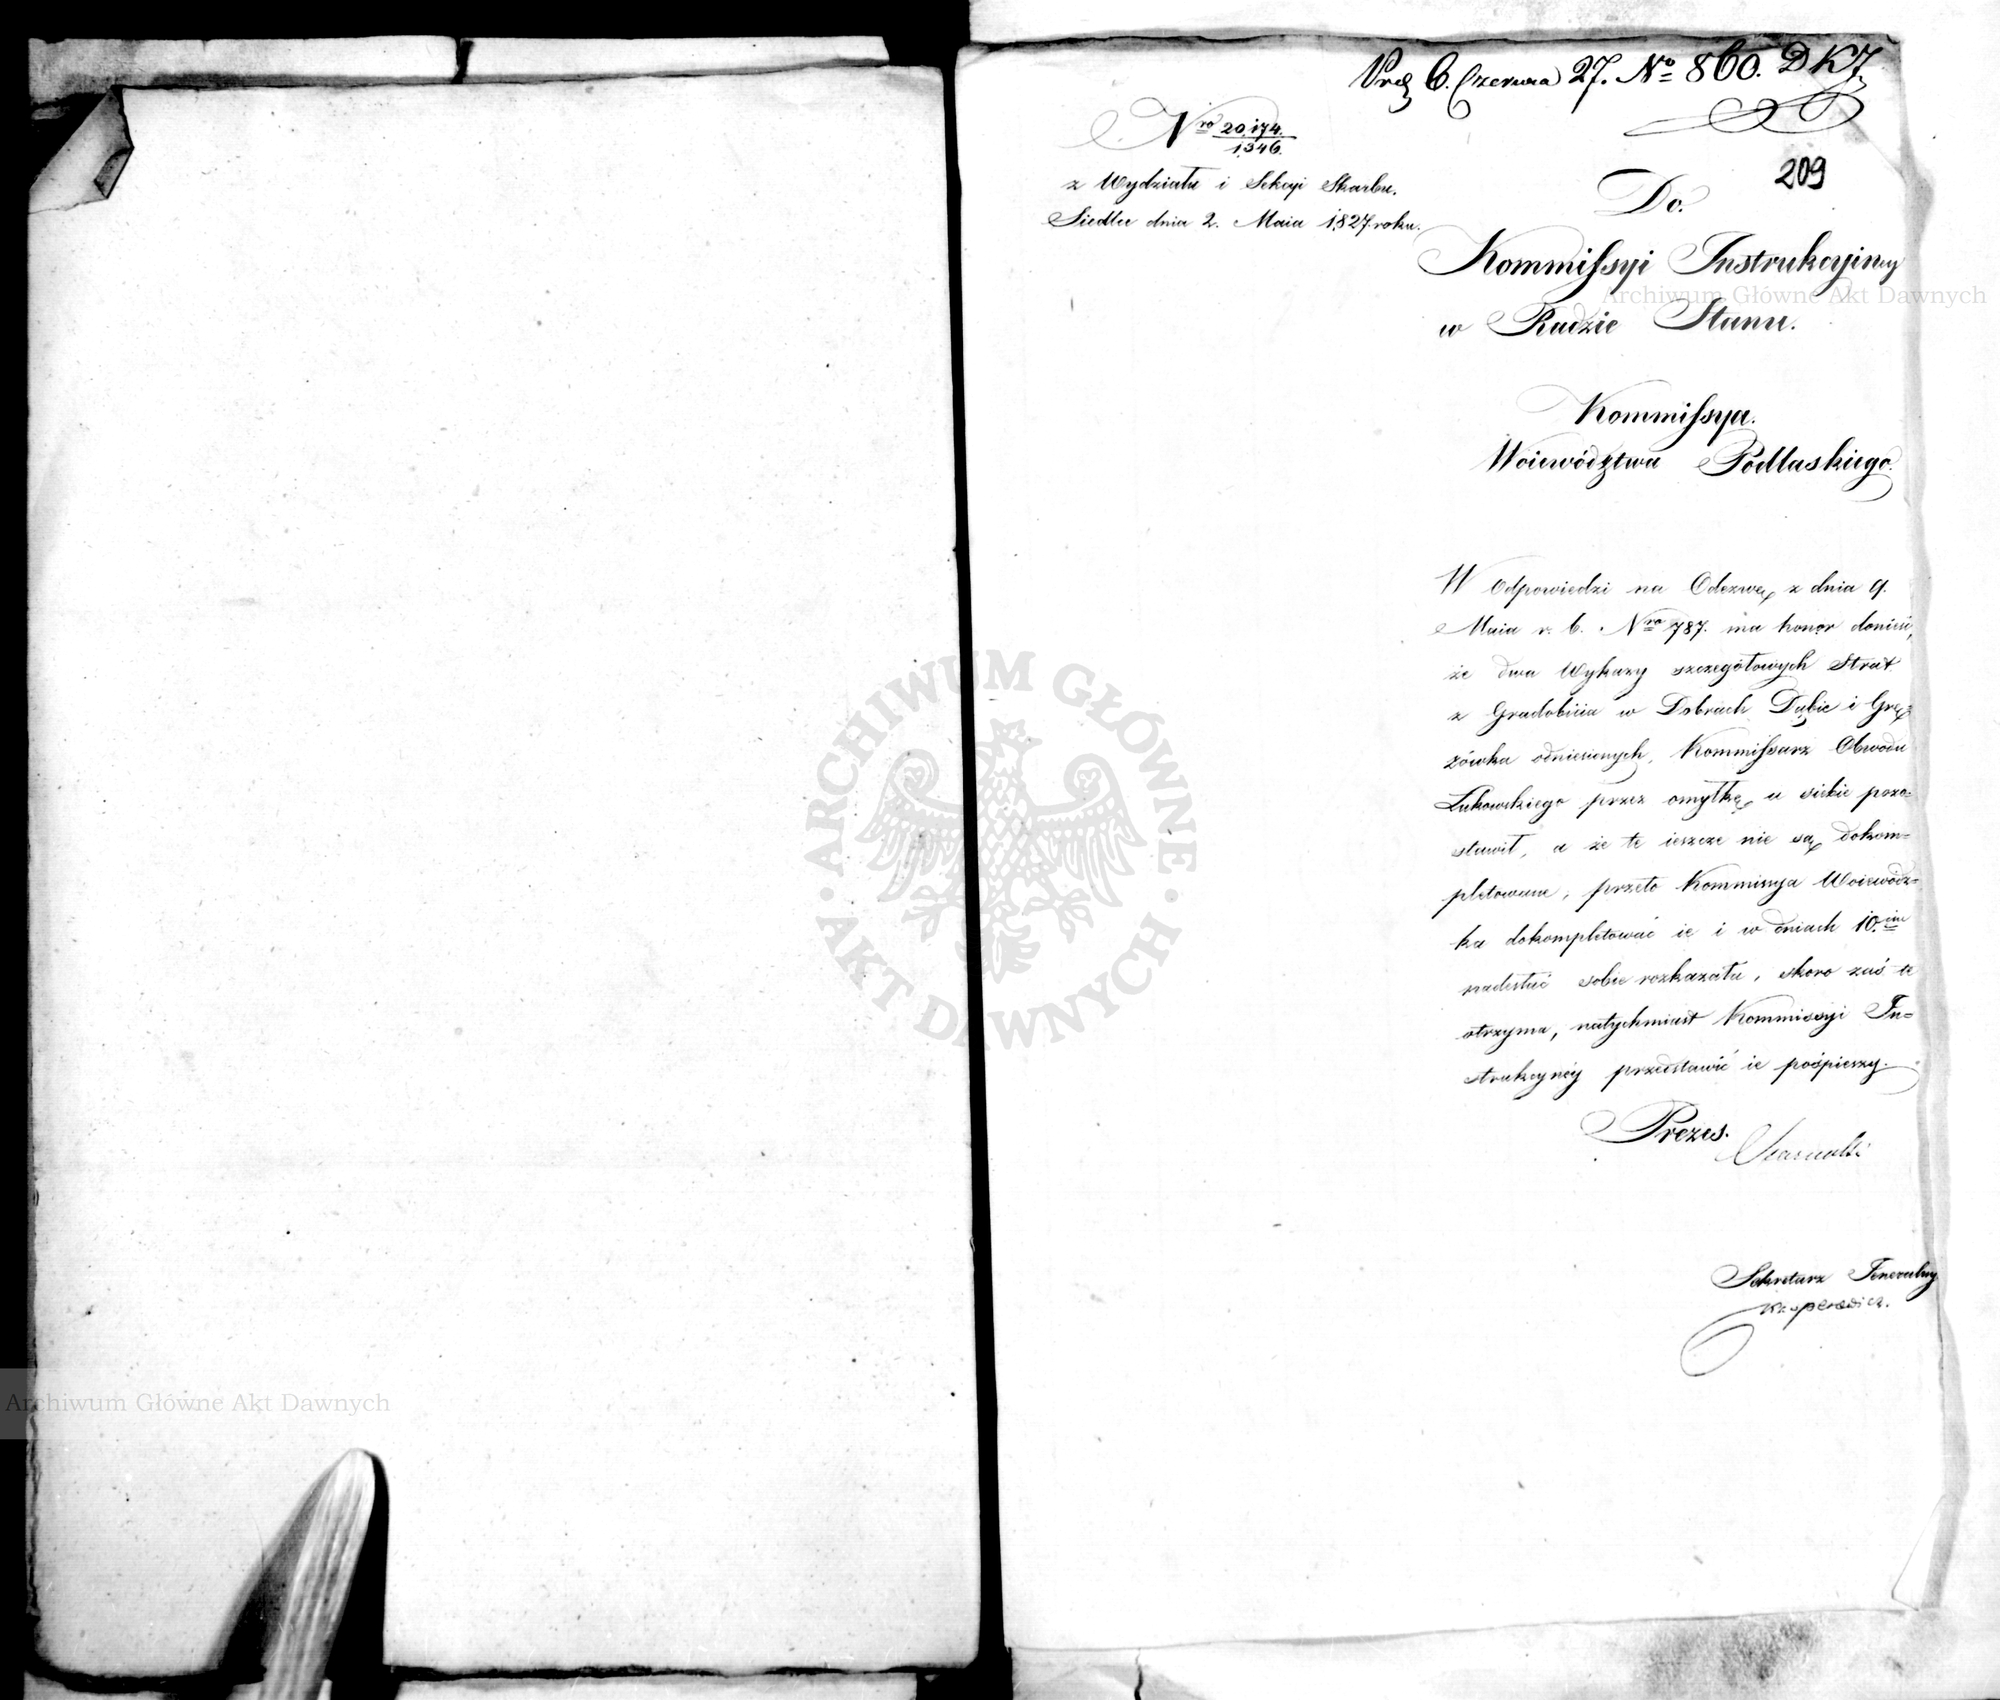 Prez 6. Czerwca 27. No 860. D K J
Nro 20,174.
1,346.
z Wydziału i Sekcyi Skarbu.
Siedlce dnia 2. Maia 1827. roku.
209
Do.
Kommissyi Instrukcyiney
w Radzie Stanu.
Kommissya.
Woiewództwa Podlaskiego.
W Odpowiedzi na Odezwę z dnia 9.
Maia r. b. Nro 787. ma honor donieść,
że dwa Wykazy szczegółowych Strat
z Gradobicia w Dobrach Dąbie i Grę-
zówka odniesionych, Kommissarz Obwodu
Łukowskiego przez omyłkę u siebie pozo-
stawił, a że te ieszcze nie są dokom=
pletowane, przeto Kommissya Woiewódz=
ka dokompletować ie i w dniach 10.ciu
nadesłać sobie rozkazała, skoro zaś te
otrzyma, natychmiast Kommissyi In=
strukcyinéy przedstawić ie pośpieszy.
Prezes.
Sekretarz Jeneralny
Archiwum Główne Akt Dawnych
ARCHIWUM GŁÓWNE
AKT DAWNYCH
Archiwum Główne Akt Dawnych